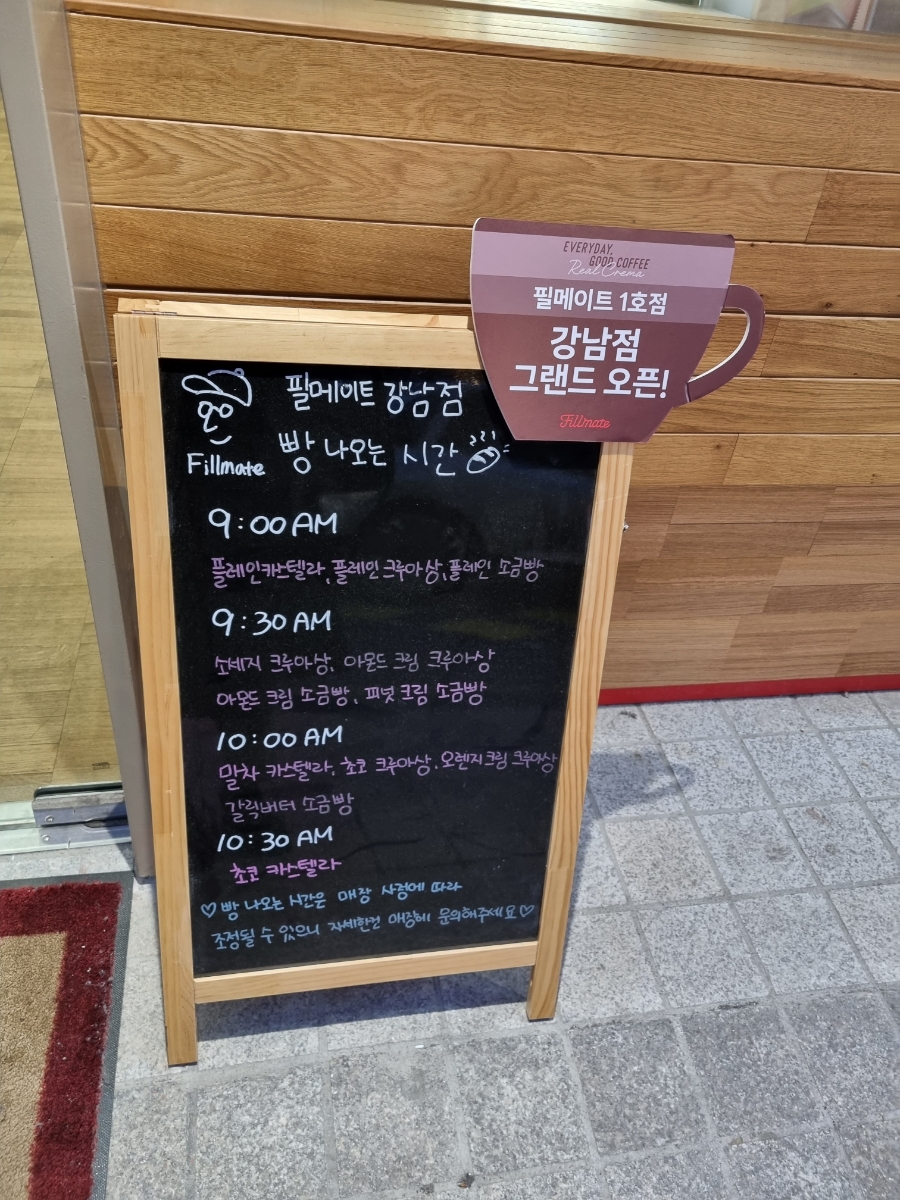 EVERYDAY,
GOOD COFFEE
Real Crema
필메이트 1호점
강남점
그랜드 오픈!
Fillmate
필메이트 강남점
Fillmate
빵 나오는 시간
9:00 AM
플레인카스텔라, 플레인 크루아상, 플레인 소금빵
9:30 AM
소세지 크루아상, 아몬드 크림 크루아상
아몬드 크림 소금빵, 피넛 크림 소금빵
10:00 AM
말차 카스텔라, 초코 크루아상, 오렌지크림 크루아상
갈릭버터 소금빵
10:30 AM
초코 카스텔라
♡빵 나오는 시간은 매장 사정에 따라
조정될 수 있으니 자세한건 매장에 문의해주세요♡